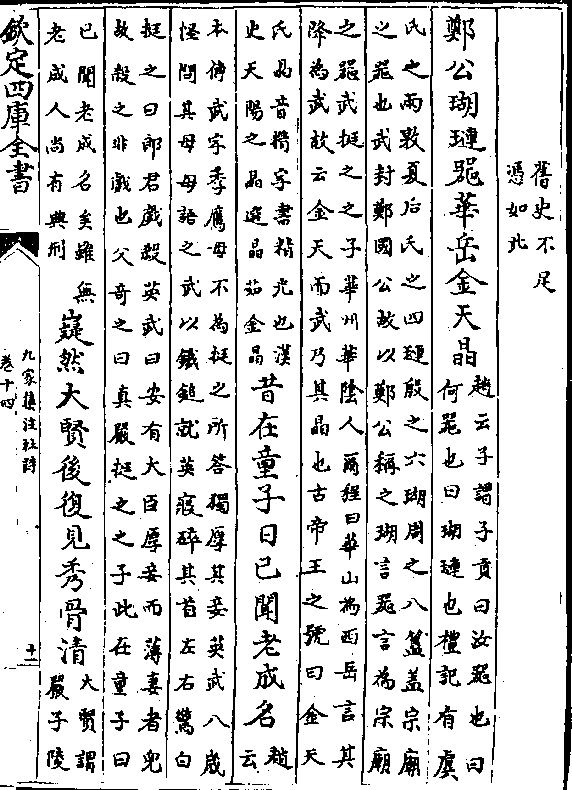 舊史不足
憑如此
鄭公瑚璉器華岳金天晶
趙云子謂子貢曰汝器也曰
何器也曰瑚璉也禮記有虞
氏之兩敦夏后氏之四璉殷之六瑚周之八簋蓋宗廟
之器也武封鄭國公故以鄭公稱之瑚言器言為宗廟
之器武挺之之子華州華陰人爾程曰華山為西岳言其
降為武故云金天而武乃其晶也古帝王之號曰金天
氏晶音精字書精光也漢
史天陽之晶選晶茹金晶
昔在童子日已聞老成名
趙
云
本傳武字季鷹母不為挺之所答獨厚其妾英武八歲
怪問其母母語之武以鐵鎚就英寢碎其首左右驚白
挺之曰郎君戲殺英武曰安有大臣厚妾而薄妻者兒
故殺之非戲也父奇之曰真嚴挺之之子此在童子曰
已聞老成名矣雖無
老成人尚有典刑
嶷然大賢後復見秀骨清
大賢謂
嚴子陵
欽定四庫全書
九家集注杜詩
卷十四
十二